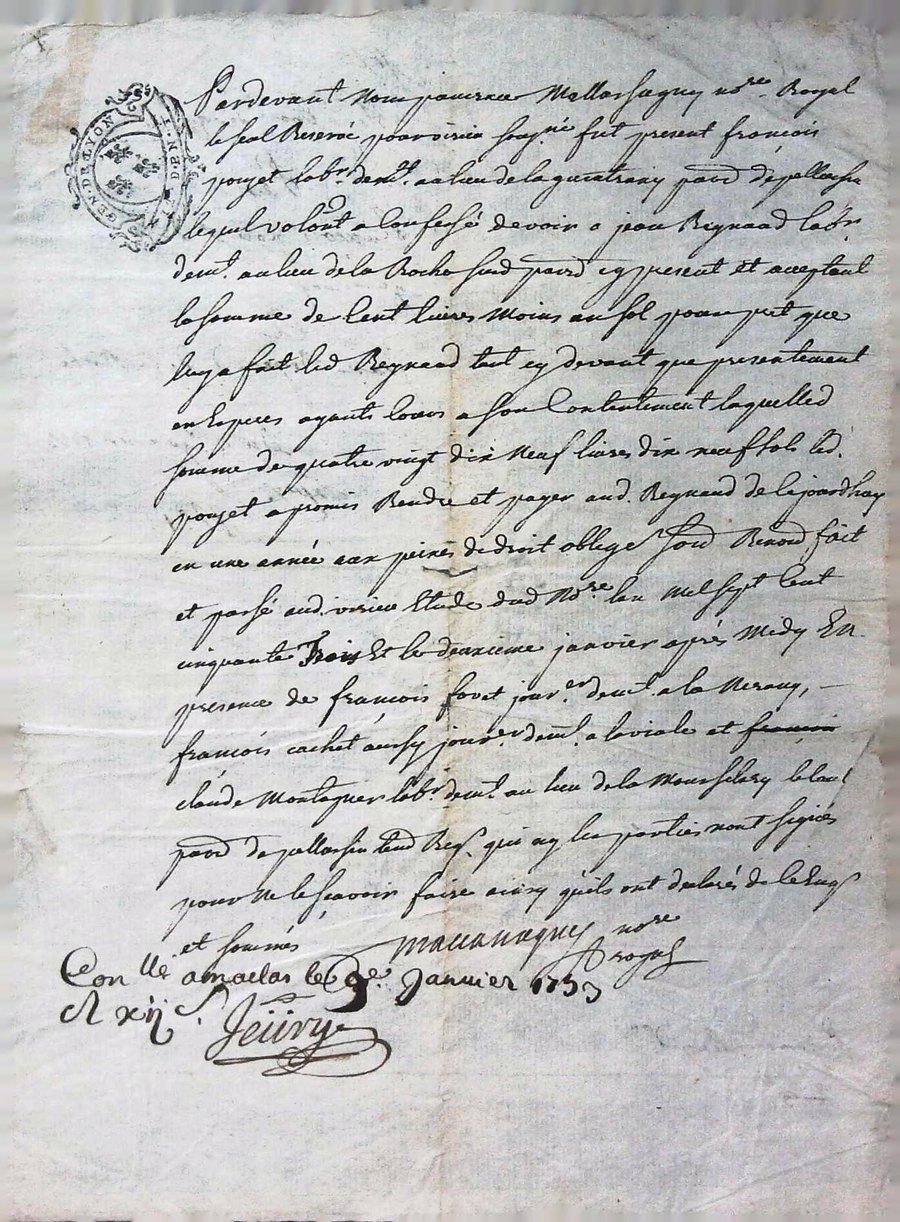 GEN. DE LYON
Pardevant Nous
le seel Reservé pour soussigné fut present françois
pouzet labr. demt. au lieu de parr. de pellussin
lequel volont. a confessé devoir a jean Reynaud labr.
demt. au lieu de la Roche parr. cy present et acceptant
la somme de Cent livres moins un sol pour pret que
luy a fait led Reynaud tant cy devant que presentement
en Especes ayants cours a son Contentement laquelled
somme de quatre vingt dix neuf livres dix neuf sols led.
pouzet a promis Rendre et payer aud. Reynaud
en une année aux peines de droit oblige soud Renond, fait
et passé aud. virieu Etude dud Nore lan Mil sept Cent
cinquante Trois Et le deuxieme janvier après Midy En
presence de françois jourer demt. a
françois cachet aussy jourer demt. a et françois
claude Montagner labr. demt. au lieu de la
parr de pellussin qui ny les parties nont signés
pour Ne le sçavoir faire ainsy quils ont declarés de ce Enqs
et sommés
nore
royal
Conllé amaclas le 9e. Janvier 1753
R xij s.